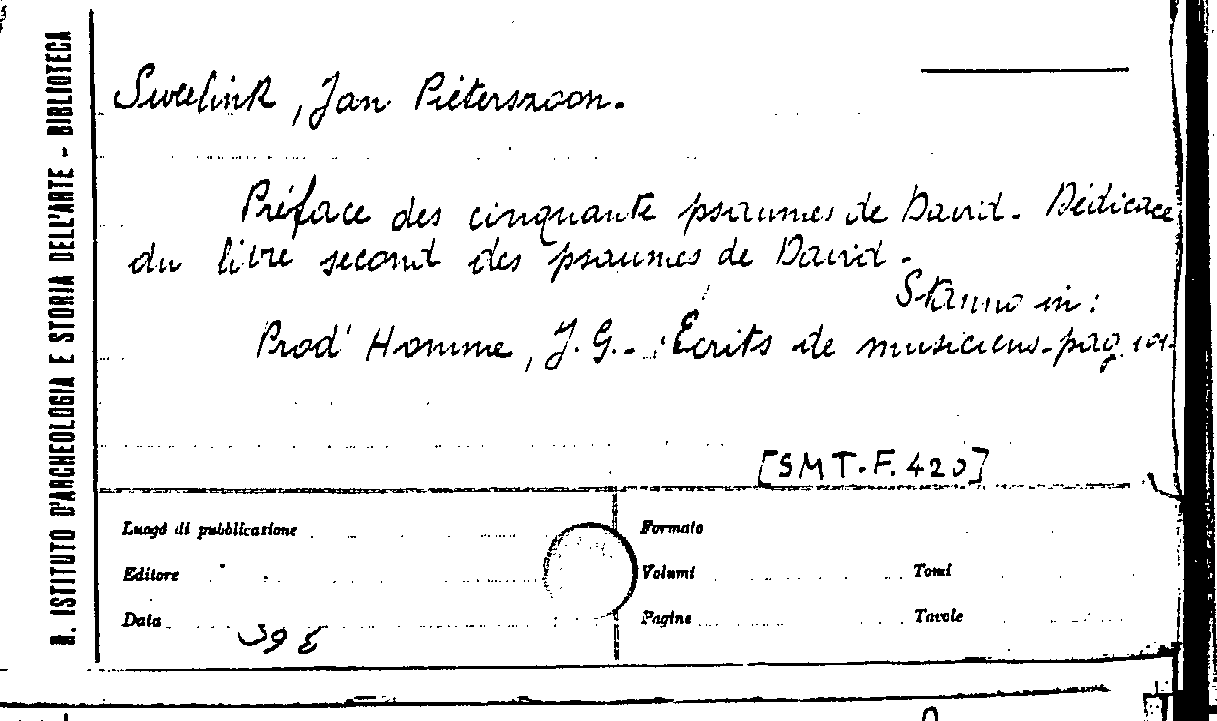 R. ISTITUTO D'ARCHEOLOGIA E STORIA DELL'ARTE - BIBLIOTECA
Swelink, Jan Pieterszoon.
Préface des cinquante psaumes de David. Dédicace
du livre second des psaumes de David.
Stanno in:
Prod'Homme, J.G. - Écrits de musiciens - pag. 101.
[SMT.F.420]
Luogo di pubblicazione
Formato
Editore
Volumi
Tomi
Data
Pagine
Tavole